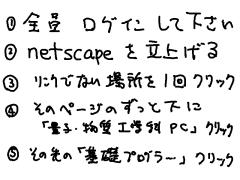 ① 全員 ログイン して下さい
② netscape を立上げる
③ リンクでない場所を1回クリック
④ そのページのずっと下に
「量子・物質工学科 PC」クリック
⑤ その先の「基礎プログラー」クリック